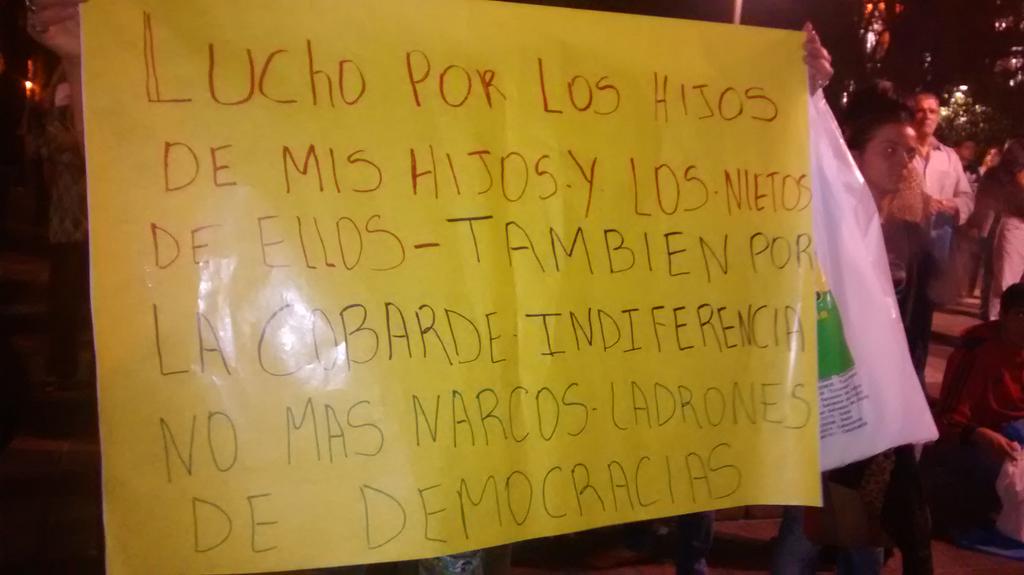 LUChO POR LOS HIJOS
DE MIS HIJOS.Y LOS.NIETOS
DE ELLOS-TAMBIEN POR
LA COBARDE.INDIFERENCIA
NO MAS NARCOS.LADRONES
DE DEMOCRACIAS